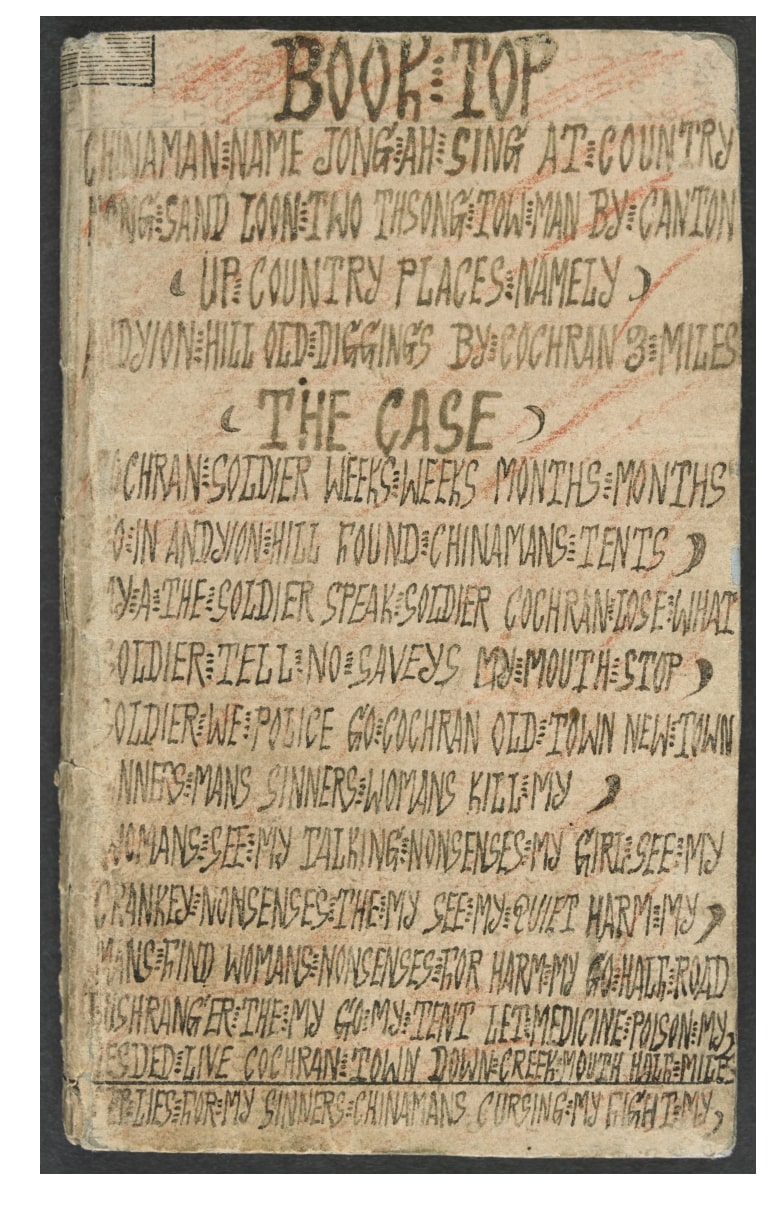 BOOK⁝TOP
CHINAMAN⁝NAME JONG⁝AH⁝SING AT⁝COUNTRY
SAND LOON⁝TWO THSONG⁝TOW⁝MAN BY⁝CANTON
( UP⁝COUNTRY PLACES⁝NAMELY )
ANDYION⁝HILL OLD⁝DIGGINGS BY⁝COCHRAN 3⁝MILES
( THE CASE )
COCHRAN⁝SOLDIER WEEKS⁝WEEKS MONTHS⁝MONTHS
GO⁝IN ANDYION⁝HILL FOUND⁝CHINAMANS⁝TENTS )
MY⁝A⁝THE⁝SOLDIER SPEAK⁝SOLDIER COCHRAN⁝LOSE⁝WHAT
SOLDIER⁝TELL⁝NO⁝SAVEYS MY⁝MOUTH⁝STOP )
SOLDIER⁝WE⁝POLICE GO⁝COCHRAN OLD⁝TOWN NEW⁝TOWN
SINNERS⁝MANS SINNERS⁝WOMANS KILL⁝MY )
WOMANS⁝SEE⁝MY TALKING⁝NONSENSES⁝MY GIRL⁝SEE⁝MY
CRANKEY⁝NONSENSES⁝THE⁝MY SEE⁝MY⁝QUIET HARM⁝MY )
MANS⁝FIND WOMANS⁝NONSENSES⁝FOR HARM⁝MY GO⁝HALF⁝ROAD
BUSHRANGER⁝THE⁝MY GO⁝MY⁝TENT LET⁝MEDICINE⁝POISON⁝MY,
LIVE COCHRAN⁝TOWN DOWN⁝CREEK⁝MOUTH HALF⁝MILES
LIES⁝FOR⁝MY SINNERS⁝CHINAMANS CURSING⁝MY FIGHT⁝MY,